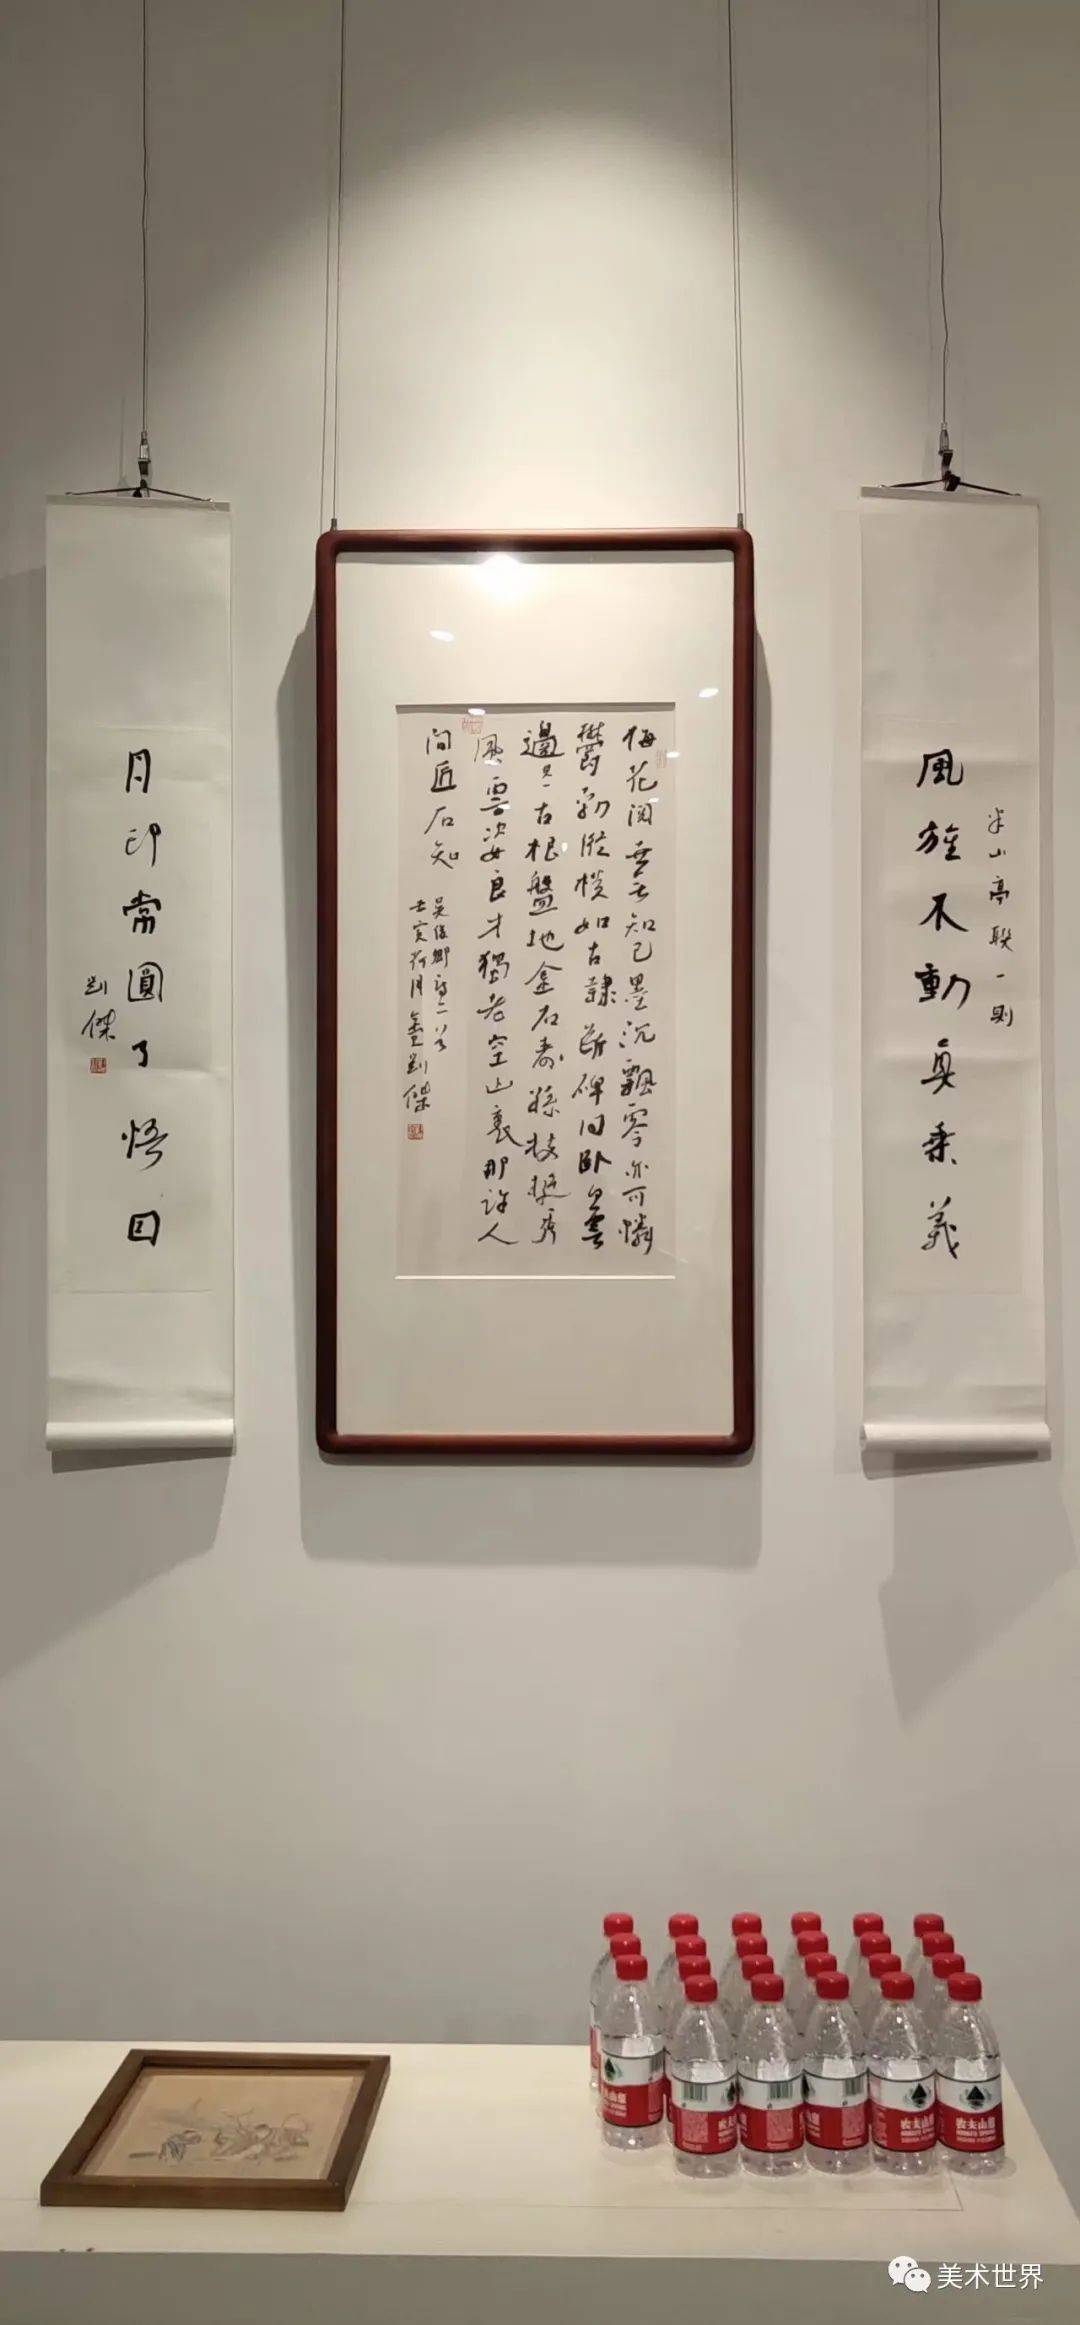 風旌不動真乘義
半山亭聯一則
梅花 知己墨沉飄零亦可憐
鬱勃縱橫如古隸斷碑同臥白雲
邊 古根盤地金石壽孫枝挺秀
風雲姿良才獨老空山裏那許人
間匠石知
吳俊卿詩二首
壬寅荷月 刘傑
月印常圓了悟因
刘傑
农夫山泉
农夫山泉
美术世界